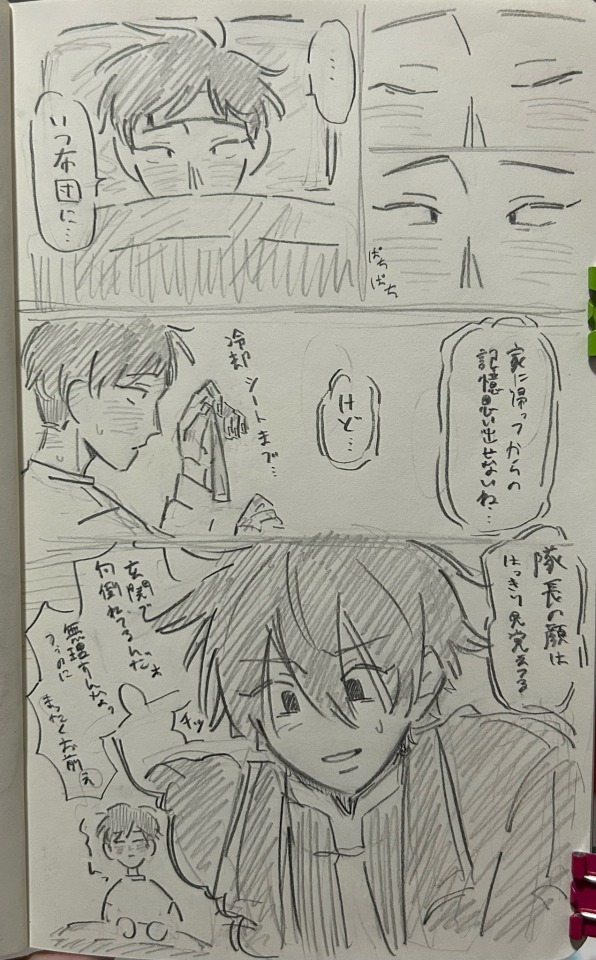 ぱち
ぱち
…
いつ布団に…
家に帰ってからの
記憶思い出せないね…
けど…
冷却
シートまで…
隊長の顔は
はっきり見覚えてる
チッ
玄関で
何倒れてるんだぁ
無理すんなっ
つうのに
まったくお前ぇ